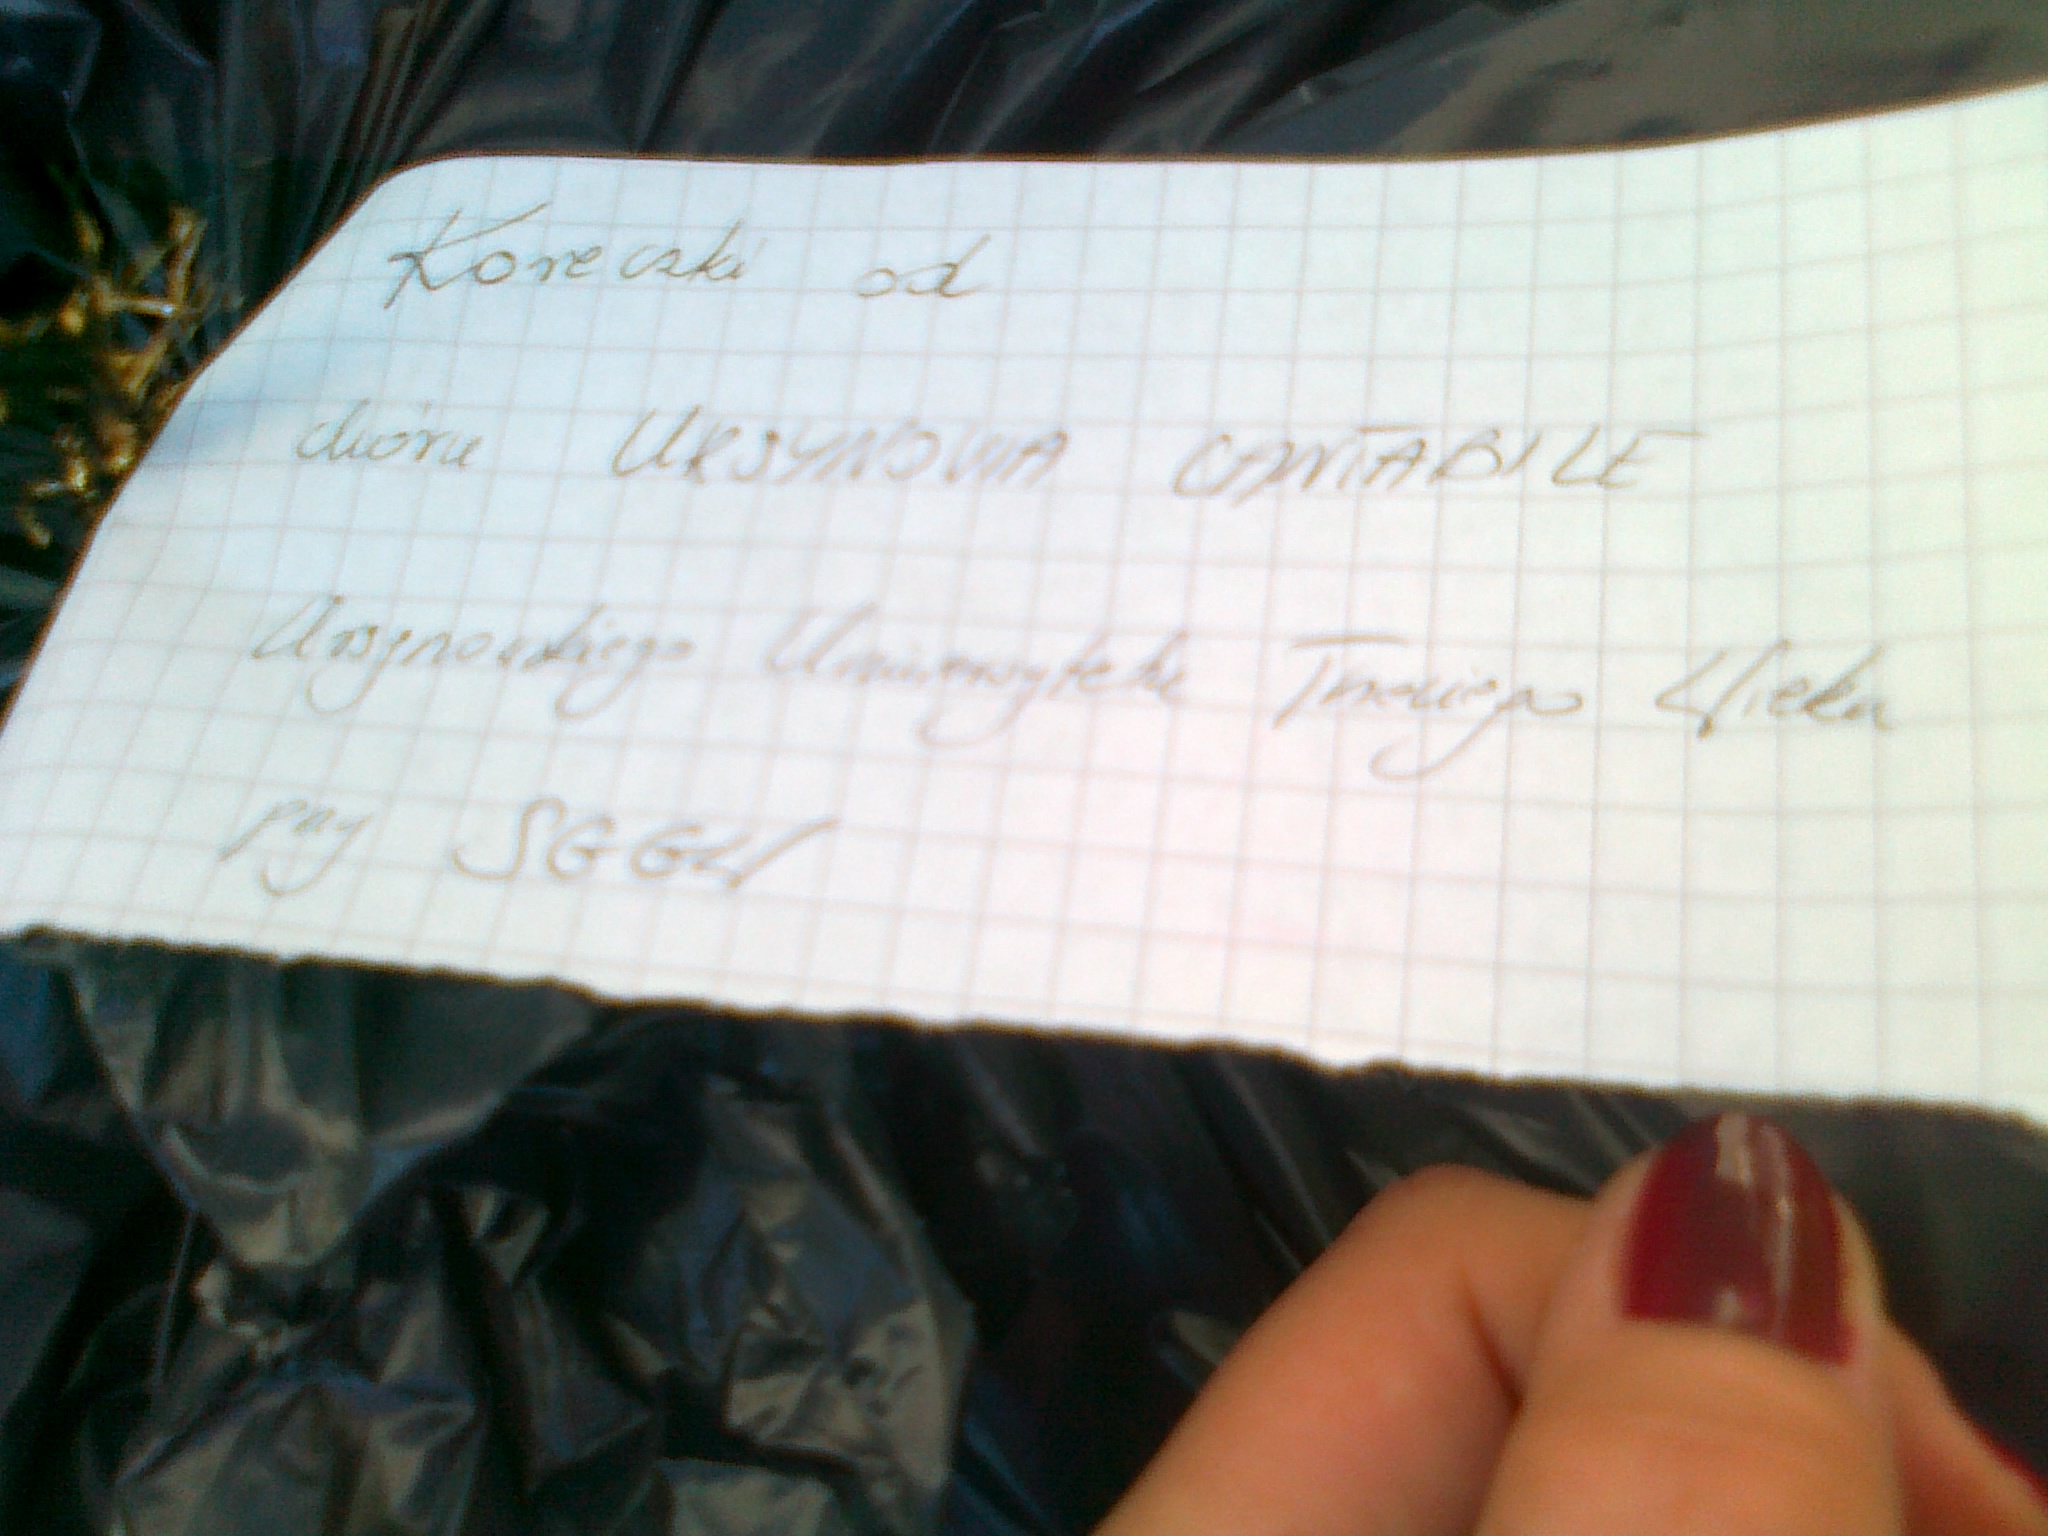 Koreczki od
chóru URSYNOVIA CANTABILE
Ursynowskiego Uniwersytetu Trzeciego Wieku
przy SGGW